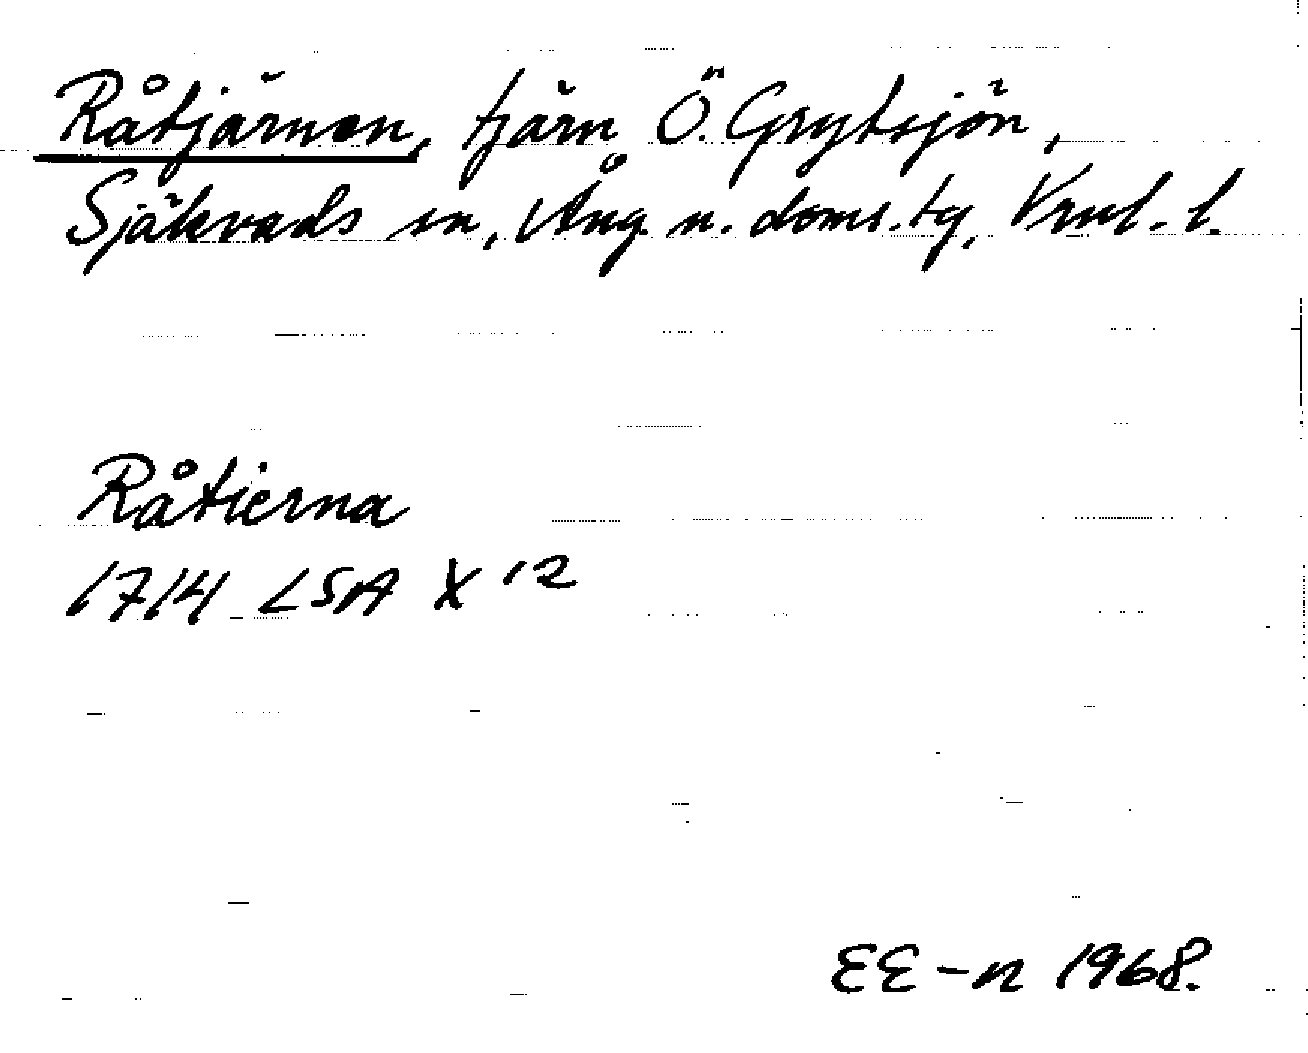 Råtjärnen, tjärn Ö. Grytsjön,
Själevads sn, Ång. n. doms. tg, Vnrl. l.
Råtierna
1714 LSA X 12
EE-n 1968.